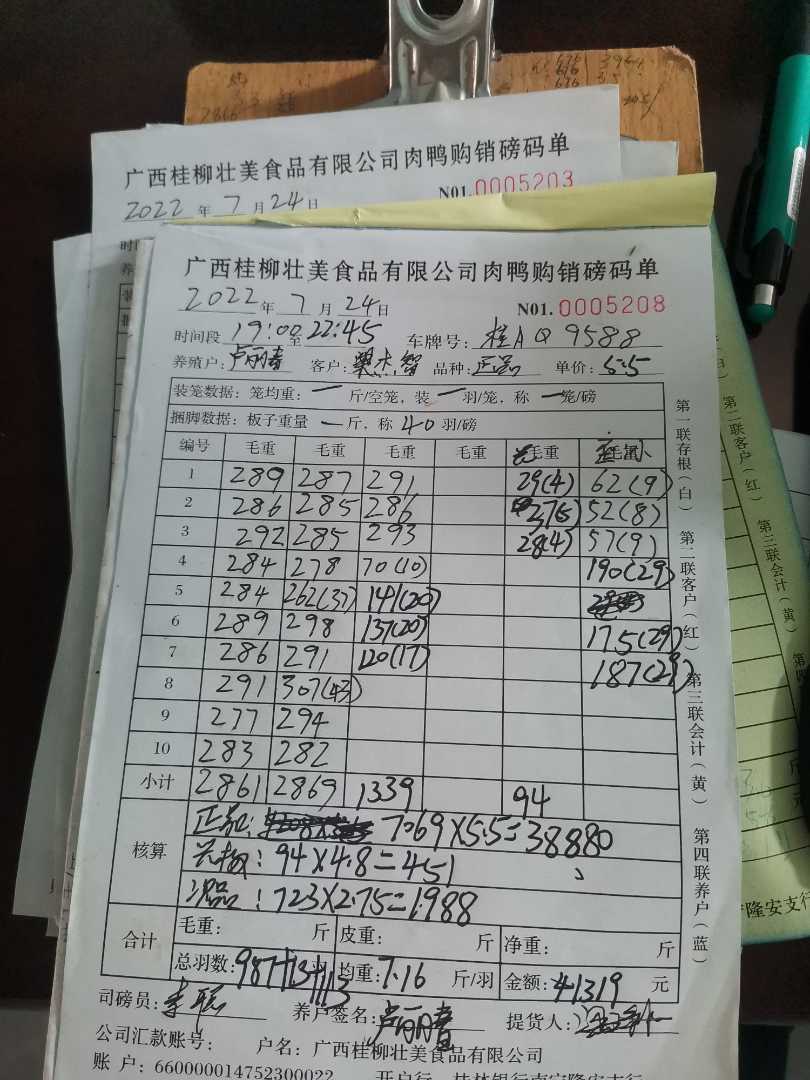 广西桂柳壮美食品有限公司肉鸭购销磅码单
2022年7月24日 N01.0005203
广西桂柳壮美食品有限公司肉鸭购销磅码单
2022年7月24日 N01.0005208
时间段 19:00至22:45 车牌号: 桂AQ9588
养殖户: 卢丽春 客户: 智 品种: 正品 单价: 5.5
装笼数据: 笼均重: 一 斤/空笼, 装 一 羽/笼, 称 一 笼/磅
捆脚数据: 板子重量 一 斤, 称 40 羽/磅
编号 毛重 毛重 毛重 毛重 毛重
1 289 287 291 29(4) 62(9)
2 286 285 286 37(5) 52(8)
3 292 285 293 28(4) 57(9)
4 284 278 70(10) 190(29)
5 284 262(37) 141(20)
6 289 298 137(20) 175(29)
7 286 291 120(17) 187(29)
8 291 307(43)
9 277 294
10 283 282
小计 2861 2869 1339 94
核算
正品: 7069×5.5=38880
94×4.8=451
次品: 723×2.75=1988
合计 毛重: 斤 皮重: 斤 净重: 斤
总羽数: 987+13+113 均重: 7.16 斤/羽 金额: 41319 元
司磅员: 李 养户签名: 卢丽春 提货人:
公司汇款账号: 户名: 广西桂柳壮美食品有限公司
账 户: 660000014752300022 开户行 桂林银行南宁隆安支行
第一联存根(白)
第二联客户(红)
第三联会计(黄)
第四联养户(蓝)
第二联客户(红)
第三联会计(黄)
隆安支行